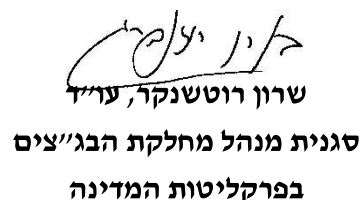 שרון רוטשנקר, עו״ד
סגנית מנהל מחלקת הבג״צים
בפרקליטות המדינה